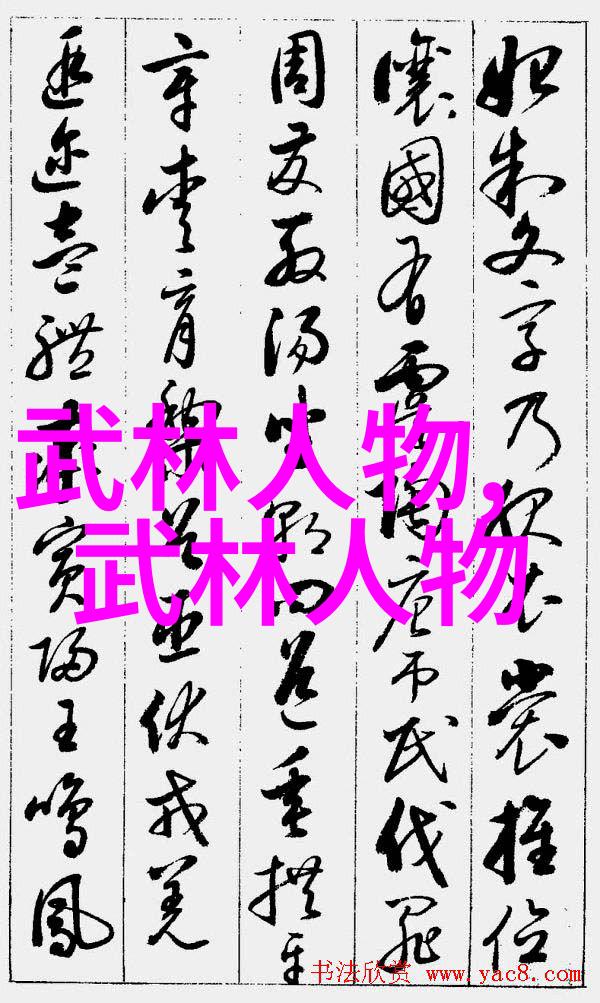 始制文字乃服衣裳推位
讓國有虞陶唐吊民伐罪
周發殷湯坐朝問道垂拱平
章愛育黎首臣伏戎羌
遐邇壹體率賓歸王鳴鳳
武林人物,
武林人物
书法欣赏 www.yac8.com